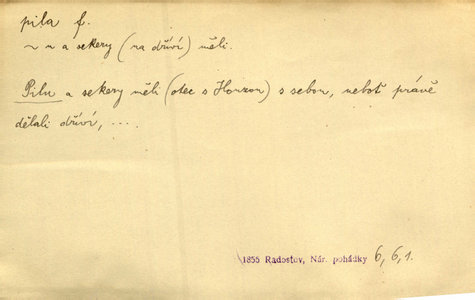 pila f.
~u a sekery (na dříví) měli.
Pilu a sekery měli (otec s Honzou) s sebou, neboť právě
dělali dříví, ....
1855 Radostov, Nár. pohádky 6, 6, 1.